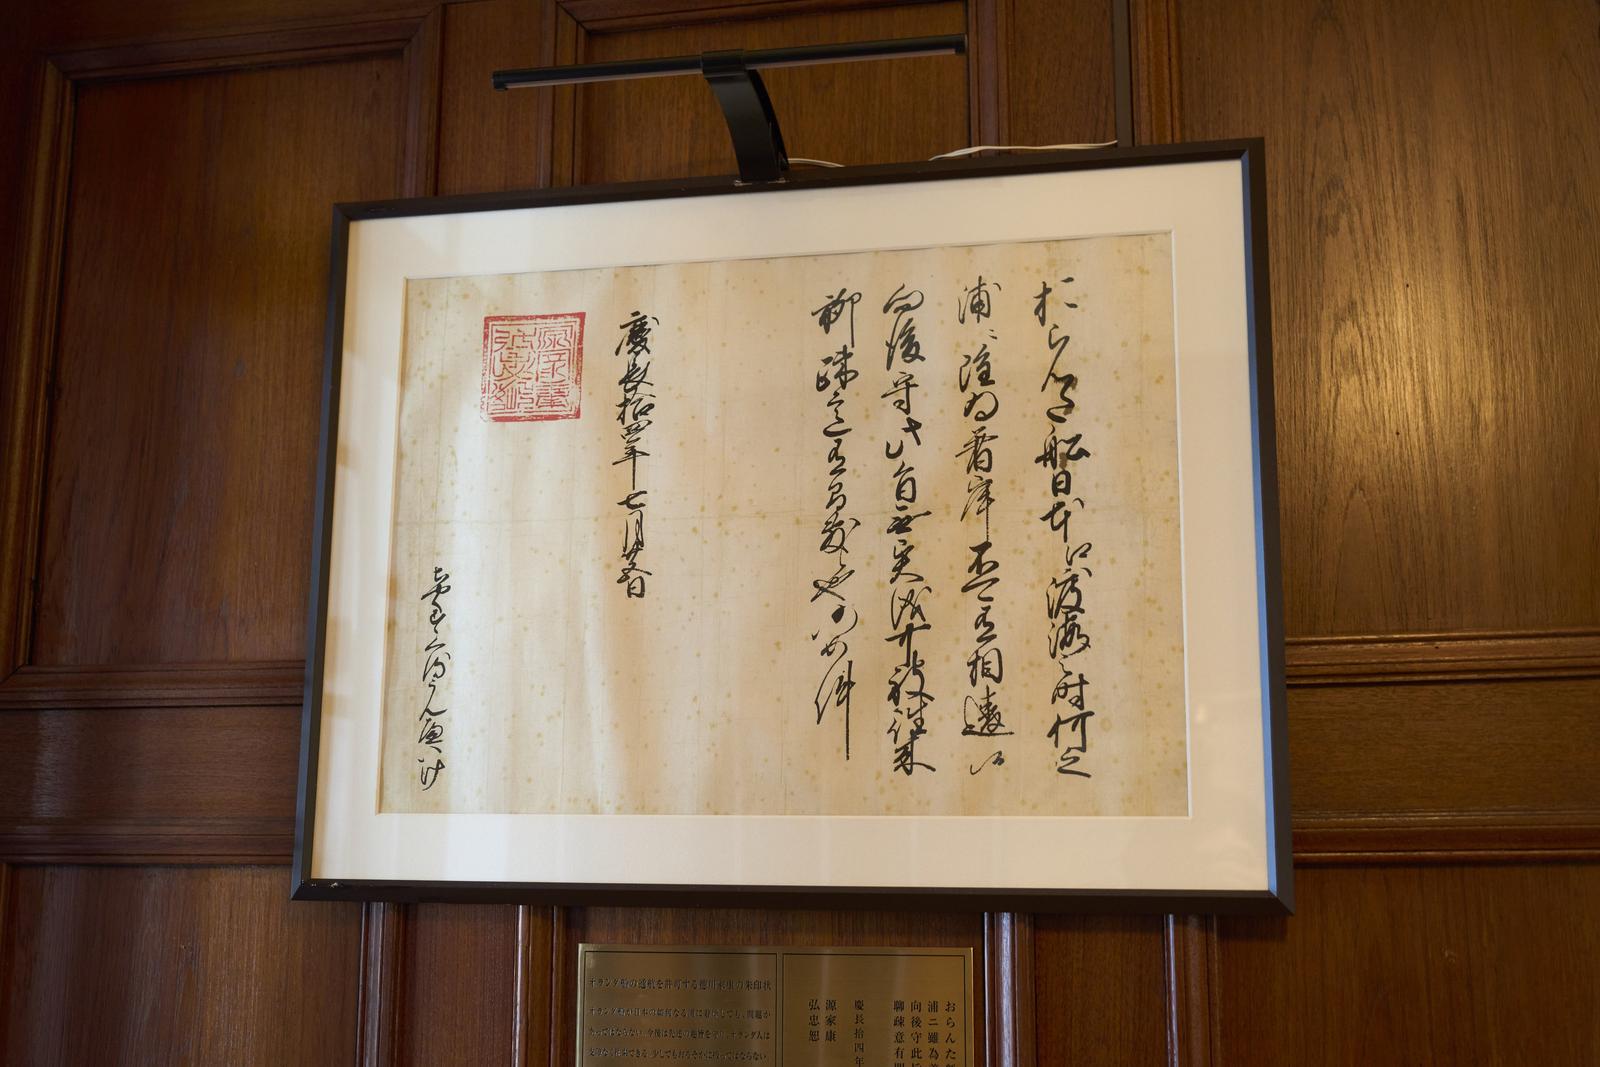 おらんた船日本江渡海之時何之
浦ニ雖為着岸不可有相違候
向後守此旨無異儀可被往来
聊疎意有間敷候也仍如件
慶長拾四年七月廿五日
源家康弘忠恕
おらんた
浦ニ雖為
向後守此
聊疎意有
慶長拾四年
源家康
弘忠恕
オランダ船の通航を許可する徳川家康の朱印状
オランダ船が日本の如何なる浦に着岸しても、問題が
あってはならない。今後は先述の趣旨を守り、オランダ人は
支障なく往来できる。少しでもおろそかに扱ってはならない。